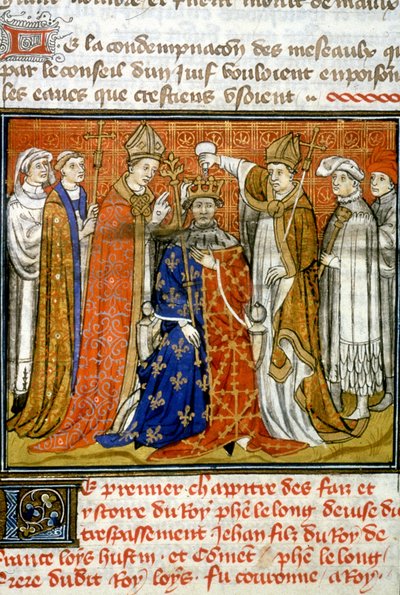 De la condempnacōn des meseaulx qui
par le conseil dun Juif vouloient enpoison
les eaues que crestiens vsoient
Le premier chappitre des faiz et
ystoire du Roy phē le long devise du
trespassement Jehan filz du Roy de
france loÿs hustin . et Comēt phē le long
frere dudit Roy loÿs . fu couronne a Roy .